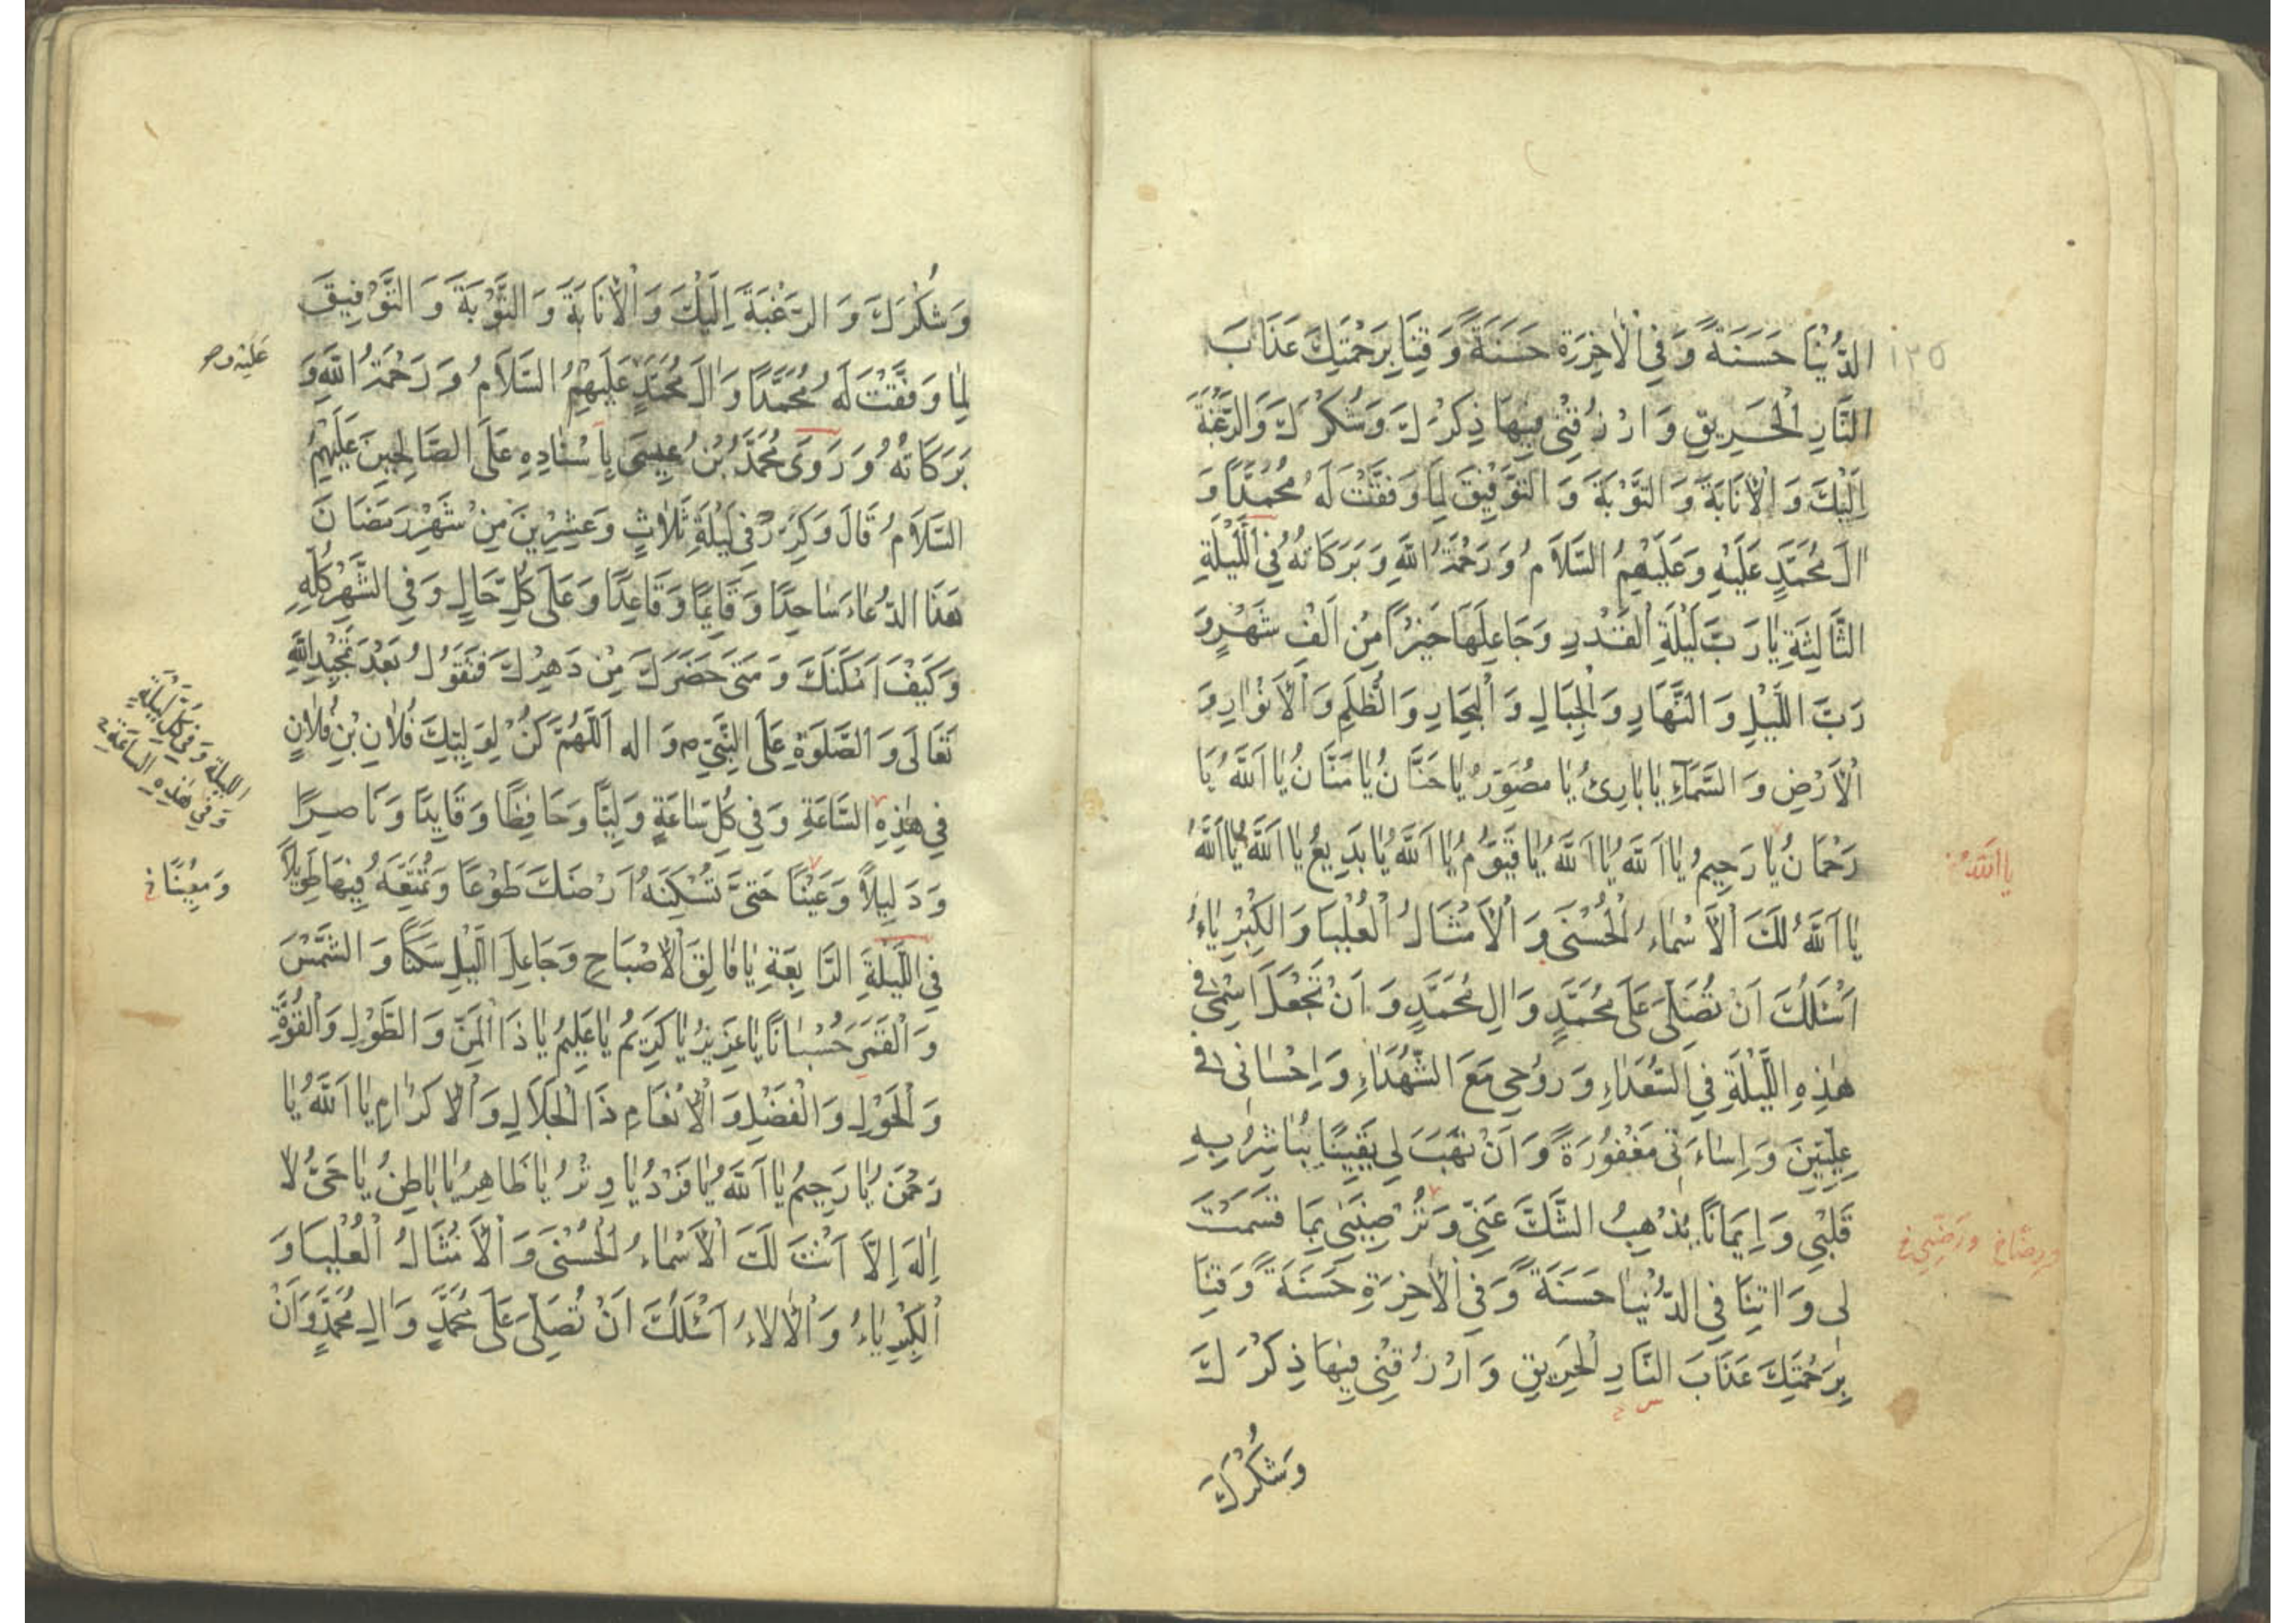 ١٣٥
الدُّنْيَا حَسَنَةً وَفِي الْاٰخِرَةِ حَسَنَةً وَقِنَا بِرَحْمَتِكَ عَذَابَ
النَّارِ الْحَرِيقِ وَارْزُقْنِي فِيهَا ذِكْرَكَ وَشُكْرَكَ وَالرَّغْبَةَ
اِلَيْكَ وَالْاِنَابَةَ وَالتَّوْبَةَ وَالتَّوْفِيقَ لِمَا وَفَّقْتَ لَهُ مُحَمَّدًا وَ
اٰلَ مُحَمَّدٍ عَلَيْهِ وَعَلَيْهِمُ السَّلَامُ وَرَحْمَةُ اللّٰهِ وَبَرَكَاتُهُ فِي اللَّيْلَةِ
الثَّالِثَةِ يَا رَبَّ لَيْلَةِ الْقَدْرِ وَجَاعِلَهَا خَيْرًا مِنْ اَلْفِ شَهْرٍ وَ
رَبَّ اللَّيْلِ وَالنَّهَارِ وَالْجِبَالِ وَالْبِحَارِ وَالظُّلَمِ وَالْاَنْوَارِ وَ
الْاَرْضِ وَالسَّمَآءِ يَا بَارِئُ يَا مُصَوِّرُ يَا حَنَّانُ يَا مَنَّانُ يَا اَللّٰهُ يَا
رَحْمَانُ يَا رَحِيمُ يَا اَللّٰهُ يَا اَللّٰهُ يَا قَيُّومُ يَا اَللّٰهُ يَا بَدِيعُ يَا اَللّٰهُ يَا اَللّٰهُ
يَا اَللّٰهُ
يَا اَللّٰهُ لَكَ الْاَسْمَاءُ الْحُسْنَى وَالْاَمْثَالُ الْعُلْيَا وَالْكِبْرِيَاءُ
اَسْئَلُكَ اَنْ تُصَلِّيَ عَلَى مُحَمَّدٍ وَاٰلِ مُحَمَّدٍ وَاَنْ تَجْعَلَ اسْمِي فِي
هٰذِهِ اللَّيْلَةِ فِي السُّعَدَاءِ وَرُوحِي مَعَ الشُّهَدَاءِ وَاِحْسَانِي فِي
عِلِّيِّينَ وَاِسَاءَتِي مَغْفُورَةً وَاَنْ تَهَبَ لِي يَقِينًا تُبَاشِرُ بِهِ
قَلْبِي وَاِيمَانًا يُذْهِبُ الشَّكَّ عَنِّي وَتُرْضِيَنِي بِمَا قَسَمْتَ
وَرَضِّنِي خ
لِي وَاٰتِنَا فِي الدُّنْيَا حَسَنَةً وَفِي الْاٰخِرَةِ حَسَنَةً وَقِنَا
بِرَحْمَتِكَ عَذَابَ النَّارِ الْحَرِيقِ وَارْزُقْنِي فِيهَا ذِكْرَكَ
وَشُكْرَكَ
وَشُكْرَكَ وَالرَّغْبَةَ اِلَيْكَ وَالْاِنَابَةَ وَالتَّوْبَةَ وَالتَّوْفِيقَ
لِمَا وَفَّقْتَ لَهُ مُحَمَّدًا وَاٰلَ مُحَمَّدٍ عَلَيْهِمُ السَّلَامُ وَرَحْمَةُ اللّٰهِ وَ
عَلَيْهِ و
بَرَكَاتُهُ وَرَوَى مُحَمَّدُ بْنُ عِيسَى بِاَسْنَادِهِ عَلَى الصَّالِحِينَ عَلَيْهِمُ
السَّلَامُ قَالَ وَكَرِّرْ فِي لَيْلَةِ ثَلَاثٍ وَعِشْرِينَ مِنْ شَهْرِ رَمَضَانَ
هَذَا الدُّعَاءَ سَاجِدًا وَقَائِمًا وَقَاعِدًا وَعَلَى كُلِّ حَالٍ وَفِي الشَّهْرِ كُلِّهِ
وَكَيْفَ اَمْكَنَكَ وَمَتَى حَضَرَكَ مِنْ دَهْرِكَ فَتَقُولُ بَعْدَ تَمْجِيدِ اللّٰهِ
تَعَالَى وَالصَّلَوةِ عَلَى النَّبِيِّ ص وَاٰلِهِ اَللّٰهُمَّ كُنْ لِوَلِيِّكَ فُلَانِ بْنِ فُلَانٍ
اللَّيْلَةِ وَفِي كُلِّ لَيْلَةٍ
وَفِي هٰذِهِ السَّاعَةِ خ
فِي هٰذِهِ السَّاعَةِ وَفِي كُلِّ سَاعَةٍ وَلِيًّا وَحَافِظًا وَقَايِدًا وَنَاصِرًا
وَدَلِيلًا وَعَيْنًا حَتَّى تُسْكِنَهُ اَرْضَكَ طَوْعًا وَتُمَتِّعَهُ فِيهَا طَوِيلًا
وَمُعِينًا خ
فِي اللَّيْلَةِ الرَّابِعَةِ يَا فَالِقَ الْاِصْبَاحِ وَجَاعِلَ اللَّيْلِ سَكَنًا وَالشَّمْسَ
وَالْقَمَرَ حُسْبَانًا يَا عَزِيزُ يَا كَرِيمُ يَا عَلِيمُ يَا ذَا الْمَنِّ وَالطَّوْلِ وَالْقُوَّةِ
وَالْحَوْلِ وَالْفَضْلِ وَالْاِنْعَامِ ذَا الْجَلَالِ وَالْاِكْرَامِ يَا اَللّٰهُ يَا
رَحْمٰنُ يَا رَحِيمُ يَا اَللّٰهُ يَا فَرْدُ يَا وِتْرُ يَا ظَاهِرُ يَا بَاطِنُ يَا حَيُّ لَا
اِلٰهَ اِلَّا اَنْتَ لَكَ الْاَسْمَاءُ الْحُسْنَى وَالْاَمْثَالُ الْعُلْيَا وَ
الْكِبْرِيَاءُ وَالْاٰلَاءُ اَسْئَلُكَ اَنْ تُصَلِّيَ عَلَى مُحَمَّدٍ وَاٰلِ مُحَمَّدٍ وَاَنْ